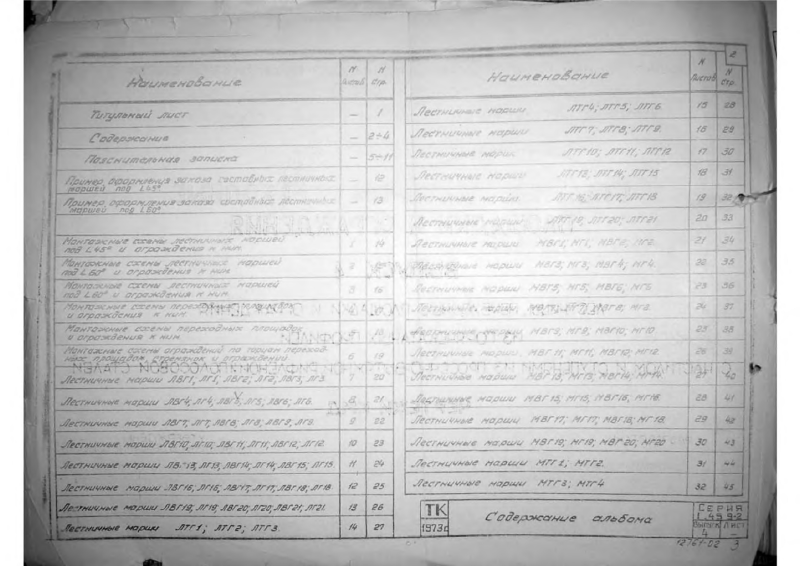 2
Наименование
N листов
N стр.
Титульный лист — 1
Содержание — 2÷4
Пояснительная записка — 5÷11
Пример оформления заказа составных лестничных маршей под L45° — 12
Пример оформления заказа составных лестничных маршей под L60° — 13
Монтажные схемы лестничных маршей
под L45° и ограждения к ним 14
Монтажные схемы лестничных маршей
под L60° и ограждения к ним
Монтажные схемы лестничных маршей
под L60° и ограждения к ним 3 16
Монтажные схемы переходных площадок
и ограждения к ним
Монтажные схемы переходных площадок
и ограждения к ним
Монтажные схемы ограждений 6 19
Лестничные марши ЛВГ1, ЛГ1, ЛВГ2, ЛГ2, ЛВГ3, ЛГ3. 7 20
Лестничные марши ЛВГ4, ЛГ4, ЛВГ5, ЛГ5, ЛВГ6, ЛГ6. 8 21
Лестничные марши ЛВГ7, ЛГ7, ЛВГ8, ЛГ8, ЛВГ9, ЛГ9. 9 22
Лестничные марши ЛВГ10, ЛГ10, ЛВГ11, ЛГ11, ЛВГ12, ЛГ12. 10 23
Лестничные марши ЛВГ13, ЛГ13, ЛВГ14, ЛГ14, ЛВГ15, ЛГ15. 11 24
Лестничные марши ЛВГ16, ЛГ16, ЛВГ17, ЛГ17, ЛВГ18, ЛГ18 12 25
Лестничные марши ЛВГ19, ЛГ19, ЛВГ20, ЛГ20, ЛВГ21, ЛГ21. 13 26
Лестничные марши ЛТГ1; ЛТГ2; ЛТГ3. 14 27
Наименование
N Листов
N Стр.
Лестничные марши ЛТГ4; ЛТГ5; ЛТГ6. 15 28
Лестничные марши ЛТГ7; ЛТГ8; ЛТГ9. 16 29
Лестничные марши ЛТГ10; ЛТГ11, ЛТГ12 17 30
Лестничные марши ЛТГ13; ЛТГ14; ЛТГ15 18 31
Лестничные марши ЛТГ16; ЛТГ17; ЛТГ18 19 32
Лестничные марши ЛТГ19, ЛТГ20; ЛТГ21 20 33
Лестничные марши МВГ1, МГ1, МВГ2, МГ2. 21 34
Лестничные марши МВГ3, МГ3, МВГ4; МГ4. 22 35
Лестничные марши МВГ5, МГ5, МВГ6, МГ6. 23 36
Лестничные марши МВГ7, МГ7, МВГ8; МГ8. 24 37
Лестничные марши МВГ9, МГ9, МВГ10; МГ10 25 38
Лестничные марши МВГ11, МГ11, МВГ12; МГ12. 26 39
Лестничные марши МВГ13, МГ13, МВГ14, МГ14. 27 40
Лестничные марши МВГ15, МГ15, МВГ16, МГ16. 28 41
Лестничные марши МВГ17; МГ17; МВГ18; МГ18. 29 42
Лестничные марши МВГ19; МГ19; МВГ20; МГ20 30 43
Лестничные марши МТГ1; МТГ2. 31 44
Лестничные марши МТГ3; МТГ4 32 45
ТК
1973г.
Содержание альбома
Серия
1.459-2
Выпуск Лист
4 —
12761-02 3